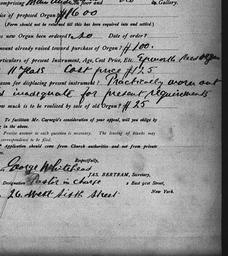 comprising
Gallery.
of proposed Organ? $1600
(Form should not be returned till this has been inquired into and settled.)
new Organ been ordered? no Date of order?
amount already raised toward purchase of Organ? $100.
Particulars of present Instrument, Age, Cost Price, Etc. Epworth Reed Organ
11 years Cost price $125
reason for displacing present instrument? Practically worn out
& inadequate for present requirements
How much is to be realized by sale of old Organ? $25
To facilitate Mr. Carnegie's consideration of your appeal, will you oblige by
in the above.
Precise answer to each question is necessary. The issuing of blanks may
correspondence to be filed.
Application should come from Church authorities and not from private
Respectfully,
JAS. BERTRAM, Secretary,
2 East 91st Street,
New York.
George Whitehead
Designation Pastor in Charge
26 West Sixth Street